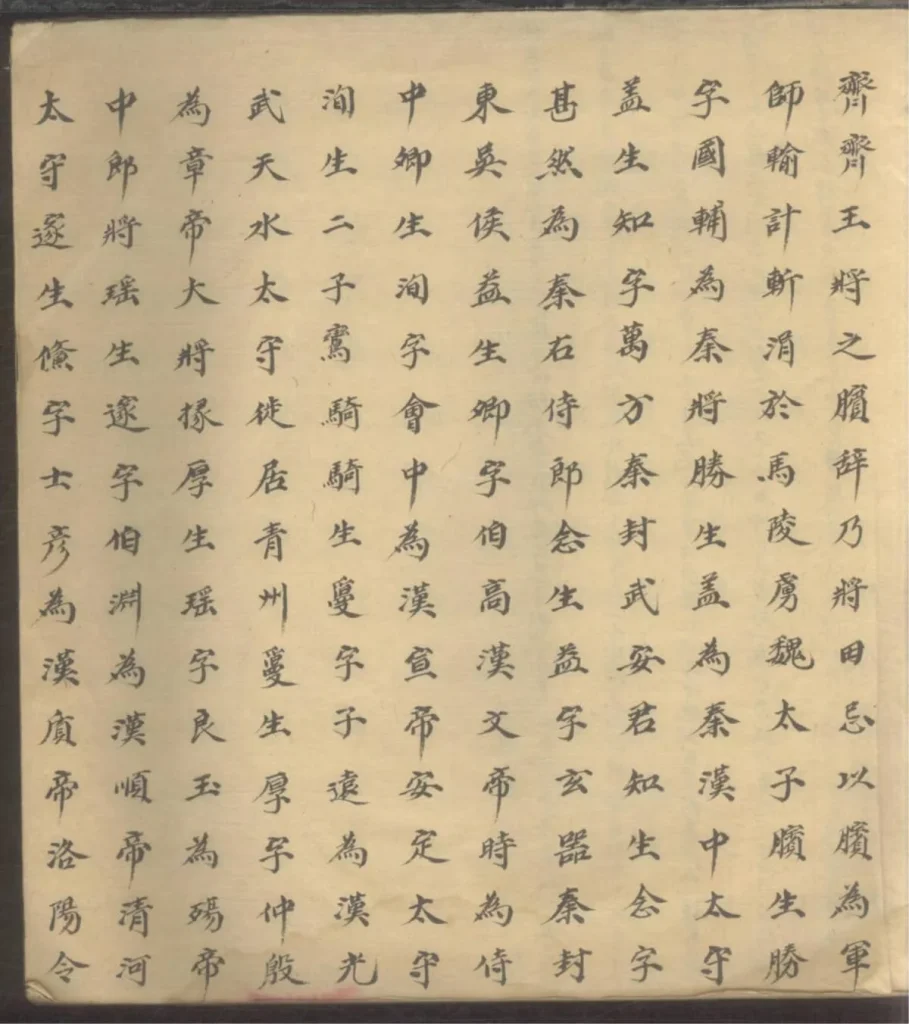 齊齊王將之臏辞乃將田忌以臏為軍
師輸計斬涓於馬陵虜魏太子臏生勝
字國輔為秦將勝生盖為秦漢中太守
盖生知字萬方秦封武安君知生念字
甚然為秦右侍郎念生益字玄器秦封
東吳侯益生卿字伯高漢文帝時為侍
中卿生洵字會中為漢宣帝安定太守
洵生二子鸞騎騎生㚇字子遠為漢光
武天水太守徙居青州㚇生厚字仲殷
為章帝大將掾厚生瑶字良玉為殤帝
中郎將瑶生邃字伯淵為漢順帝清河
太守邃生儵字士彥為漢質帝洛陽令